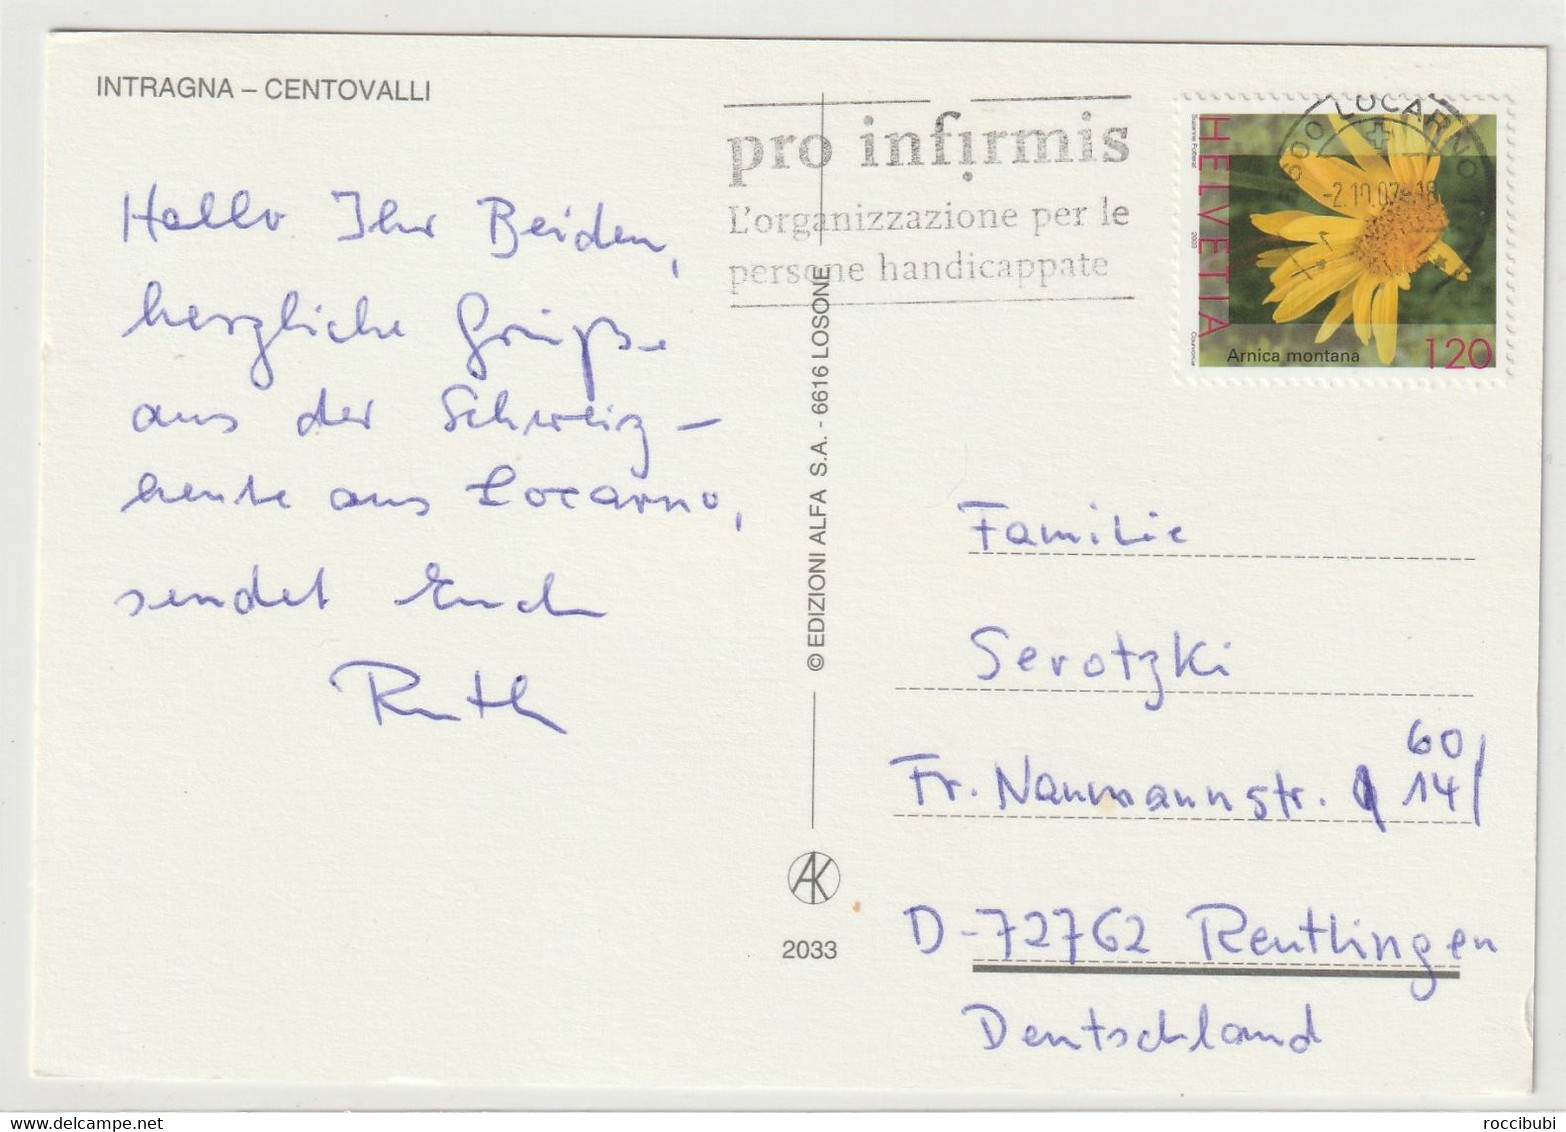 INTRAGNA – CENTOVALLI
Hallo Ihr Beiden,
herzliche Grüße
aus der Schweiz –
heute aus Locarno,
sendet Euch
Ruth
pro infirmis
L'organizzazione per le
persone handicappate
© EDIZIONI ALFA S.A. - 6616 LOSONE
AK
2033
HELVETIA
2003
Courvoisier
Arnica montana
120
6600 LOCARNO 1
-2.10.07-18
Familie
Serotzki
60
Fr. Naumannstr. 14/
D-72762 Reutlingen
Deutschland
roccibubi